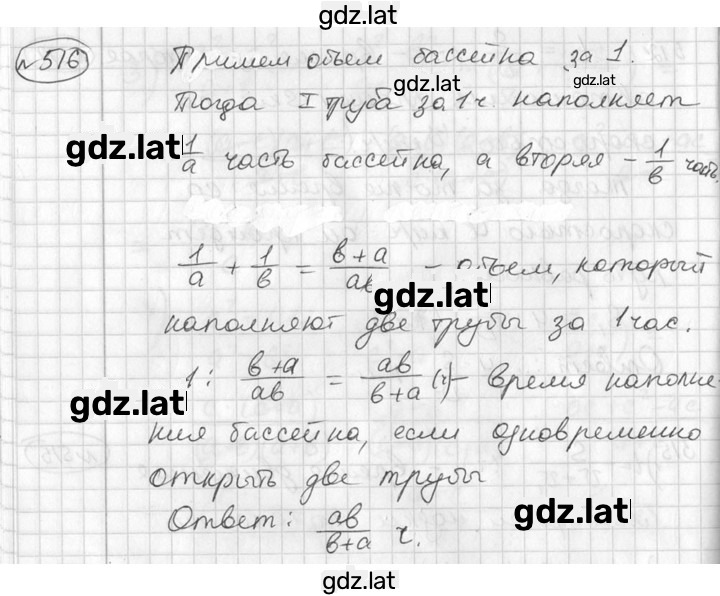 gdz.lat
№516 Примем объем бассейна за 1.
gdz.lat
Тогда I труба за 1 ч. наполняет
gdz.lat
1/a часть бассейна, а вторая - 1/b часть.
1/a + 1/b = (b+a)/ab - объем, который
gdz.lat
наполняют две трубы за 1 час.
1 : (b+a)/ab = ab/(b+a) (ч) - время наполне-
gdz.lat
ния бассейна, если одновременно
открыть две трубы
Ответ: ab/(b+a) ч.
gdz.lat
gdz.lat